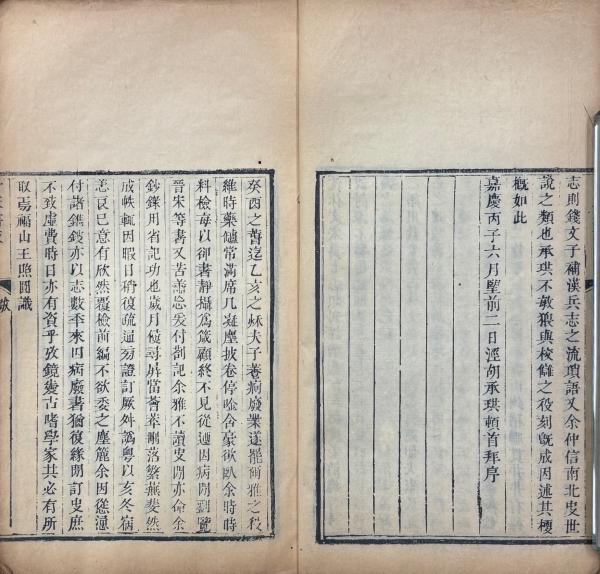 志則錢文子補漢兵志之流瑣語又余仲信南北史世
說之類也承珙不敏猥與校讎之役刻旣成因述其梗
槪如此
嘉慶丙子六月望前二日涇胡承珙頓首拜序
癸酉之暮迄乙亥之秌夫子養痾廢業遂罷爾雅之役
維時藥罏常滿席几凝塵披卷停唫舍豪欲臥余時時
料檢每以卻書靜攝爲箴顧終不見從迺因病閒劉覽
晉宋等書又苦善忘爰付劄記余雅不讀史閒亦命余
鈔錄用省記功也歲月侵尋戢孴當薈萃刪落繁蕪斐然
成帙輒因暇日稍復疏通芴證訂厥舛譌粵以亥冬病
恙良已意有欣然覆檢前編不欲委之塵簏余因慫恿
付諸鐫鍥亦以志數季來因病廢書猶復緣閒訂史庶
不致虛費時日亦有資乎攷鏡變古嗜學家其必有所
取焉福山王照圓識